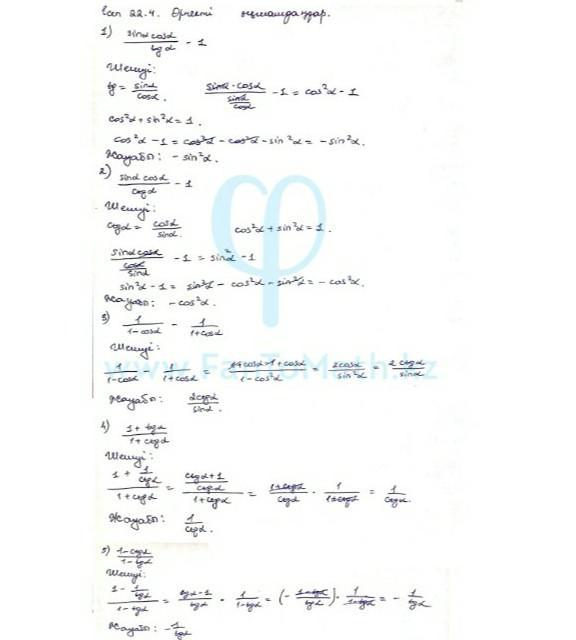 Есеп 22.4. Өрнекті ықшамдаңдар.
1) sinα cosα / tgα - 1
Шешуі:
tg = sinα / cosα. sinα · cosα / (sinα / cosα) - 1 = cos²α - 1
cos²α + sin²α = 1.
cos²α - 1 = cos²α - cos²α - sin²α = - sin²α.
Жауабы: - sin²α.
2) sinα cosα / ctgα - 1
Шешуі:
ctgα = cosα / sinα. cos²α + sin²α = 1.
sinα cosα / (cosα / sinα) - 1 = sin²α - 1
sin²α - 1 = sin²α - cos²α - sin²α = - cos²α.
Жауабы: - cos²α.
3) 1 / (1 - cosα) - 1 / (1 + cosα)
Шешуі:
1 / (1 - cosα) - 1 / (1 + cosα) = (1 + cosα - 1 + cosα) / (1 - cos²α) = 2cosα / sin²α = 2ctgα / sinα
www.FanToMath.kz
Жауабы: 2ctgα / sinα.
4) (1 + tgα) / (1 + ctgα)
Шешуі:
(1 + 1 / ctgα) / (1 + ctgα) = ((ctgα + 1) / ctgα) / (1 + ctgα) = (1 + ctgα) / ctgα · 1 / (1 + ctgα) = 1 / ctgα.
Жауабы: 1 / ctgα.
5) (1 - ctgα) / (1 - tgα)
Шешуі:
(1 - 1 / tgα) / (1 - tgα) = (tgα - 1) / tgα · 1 / (1 - tgα) = (- (1 - tgα) / tgα) · 1 / (1 - tgα) = - 1 / tgα
Жауабы: - 1 / tgα